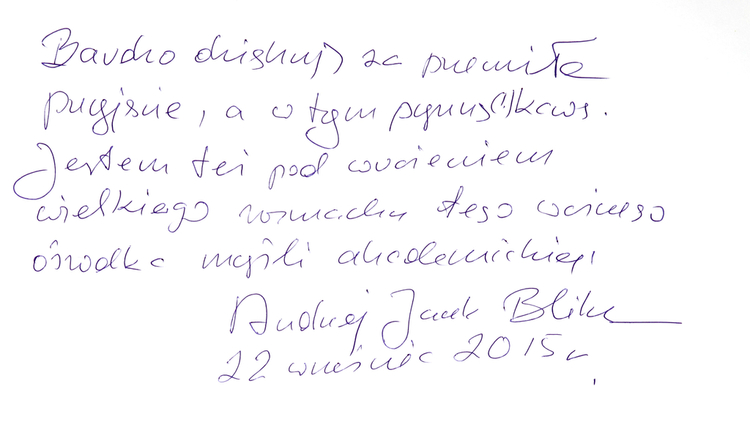 Bardzo dziękuję za przemiłe
przyjęcie, a w tym pyszną kawę.
Jestem też pod wrażeniem
wielkiego rozmachu tego ważnego
ośrodka myśli akademickiej,
Andrzej Jacek Blikle
22 wrześnie 2015 r.